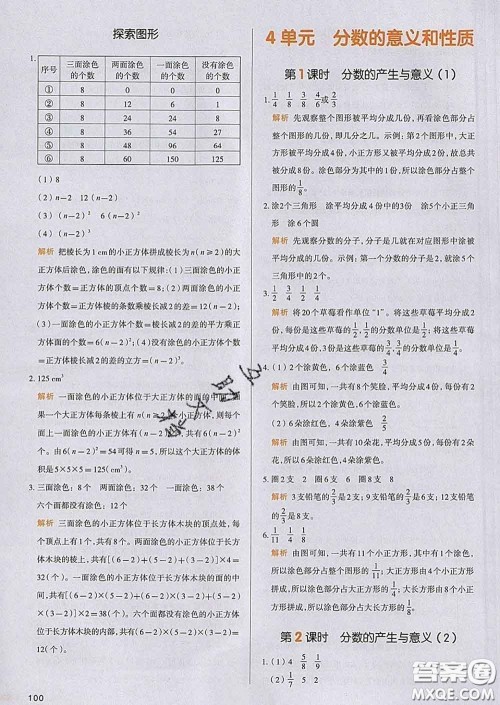 探索图形
1.
序号 三面涂色的个数 两面涂色的个数 一面涂色的个数 没有涂色的个数
① 8 0 0 0
② 8 12 6 1
③ 8 24 24 8
④ 8 36 54 27
⑤ 8 48 96 64
⑥ 8 60 150 125
(1) 8
(2) (n-2) 12(n-2)
(3) (n-2)² 6(n-2)²
(4) (n-2)³
解析 把棱长为1 cm的小正方体拼成棱长为n(n≥2)的大
正方体后涂色,涂色的面有以下规律:(1)三面涂色的小正
方体个数=正方体的顶点个数=8;(2)两面涂色的小正
方体个数=正方体棱的条数乘棱长减2的差=12(n-2);
(3)一面涂色的小正方体个数=面的个数乘棱长减2的差的平方=6(n-2)²;(4)没有涂色的小正方体个数
=正方体棱长减2的差的立方=(n-2)³。
2. 125 cm³
解析 一面涂色的小正方体位于大正方体的面的中间,如
果一个大正方体每条棱上有n个小正方体,则每个
面上一面涂色的小正方体有(n-2)²个,6个面共有6(n-2)²个。
由6(n-2)²=54可得n=5,所以这个大正方体的体积
大约是5×5×5=125(cm³)。
3. 三面涂色:8个 两面涂色:32个 一面涂色:38个
六面都没有涂色:12个
解析 三面涂色的小正方体位于长方体木块的顶点处,每
个顶点有1个,一共有8个。两面涂色的小正方体位于长方体
木块的棱上,共有[(6-2)+(5-2)+(3-2)]×4=
32(个)。一面涂色的小正方体位于长方体木块的面上,共
有[(6-2)×(5-2)+(6-2)×(3-2)+(5-2)
×(3-2)]×2=38(个)。六个面都没有涂色的小正方体位
于长方体木块的内部,共有(6-2)×(5-2)×(3-2)=
12(个)。
100
4 单元 分数的意义和性质
第 1 课时 分数的产生与意义(1)
1. 1/4 1/8 3/8 4/6或2/3
解析 先观察整个图形被平均分成几份,再看涂色部分占
整个图形的几份,即几分之几。示例:第2个图形中,大正
方形被平均分成4份,小正方形又被平均分成2份,故总共
被分成8份。涂色部分为其中的1份,所以涂色部分占整
个图形的1/8。
2. 涂2个三角形 涂平均分成4份中的3份 涂5个小正三角
形 涂6个圆
解析 先观察分数的分子,分子是几就在对应图形中涂被
平均分成的几份。示例:第1个图形中,分数的分子是2,就涂5
个三角形中的2个。
3. 1/2 1/4 3/4
解析 将20个草莓看作单位“1”。将这些草莓平均分成2
份,每份是这些草莓的1/2;将这些草莓平均分成4份,1份
是这些草莓的1/4,3份是这些草莓的3/4。
4. (1)2个涂黄色,6个涂蓝色
解析 由图可知,一共有8个笑脸,平均分成4份,每份2
个。所以2个涂黄色,6个涂蓝色。
(2)6朵涂红色,4朵涂紫色
解析 由图可知,一共有10朵花,平均分成5份,每份2
朵。所以6朵涂红色,4朵涂紫色。
5. 圈2支 圈2支 圈6支 圈8支
解析 3支铅笔的2/3是2支;
6. 1/11 1/4 1/8
解析 由图可知,一共有11个小正方形,涂色部分占其中
的1个,所以涂色部分占1/11。大正方形由4个小正方形
拼成,所以涂色部分占大正方形的1/4。大长方形由8个小
正方形拼成,所以涂色部分占大长方形的1/8。
第 2 课时 分数的产生与意义(2)
1. (1) 4/9 5/8 1/9
(2) 1/7 5 2
答案圈
MXQE.COM